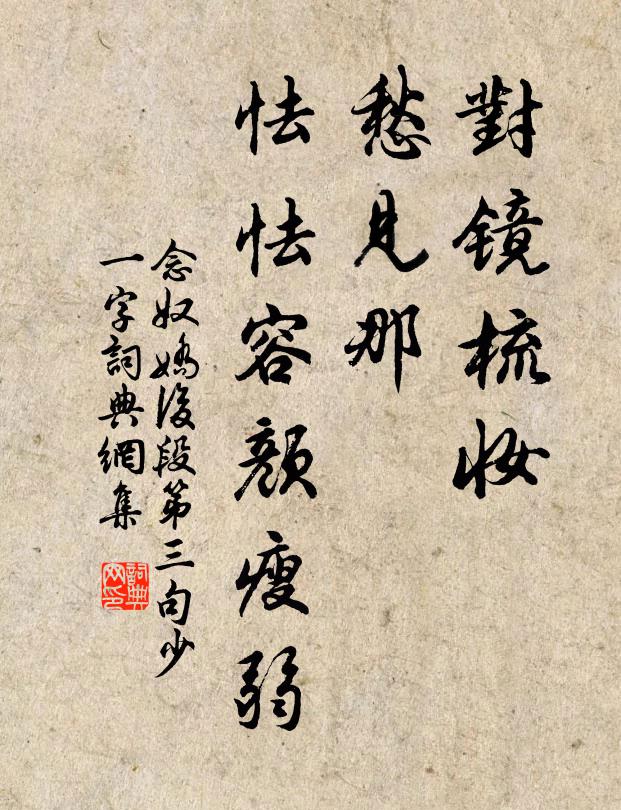 對鏡梳妝
愁見那
怯怯容顏瘦弱
念奴嬌後段第三句少
一字詞典網集
詞典
网印